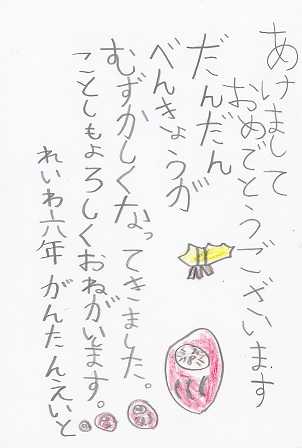 あけまして
おめでとうございます
だんだん
べんきょうが
むずかしくなってきました。
ことしもよろしくおねがいします。
れいわ六年 がんたんえいと